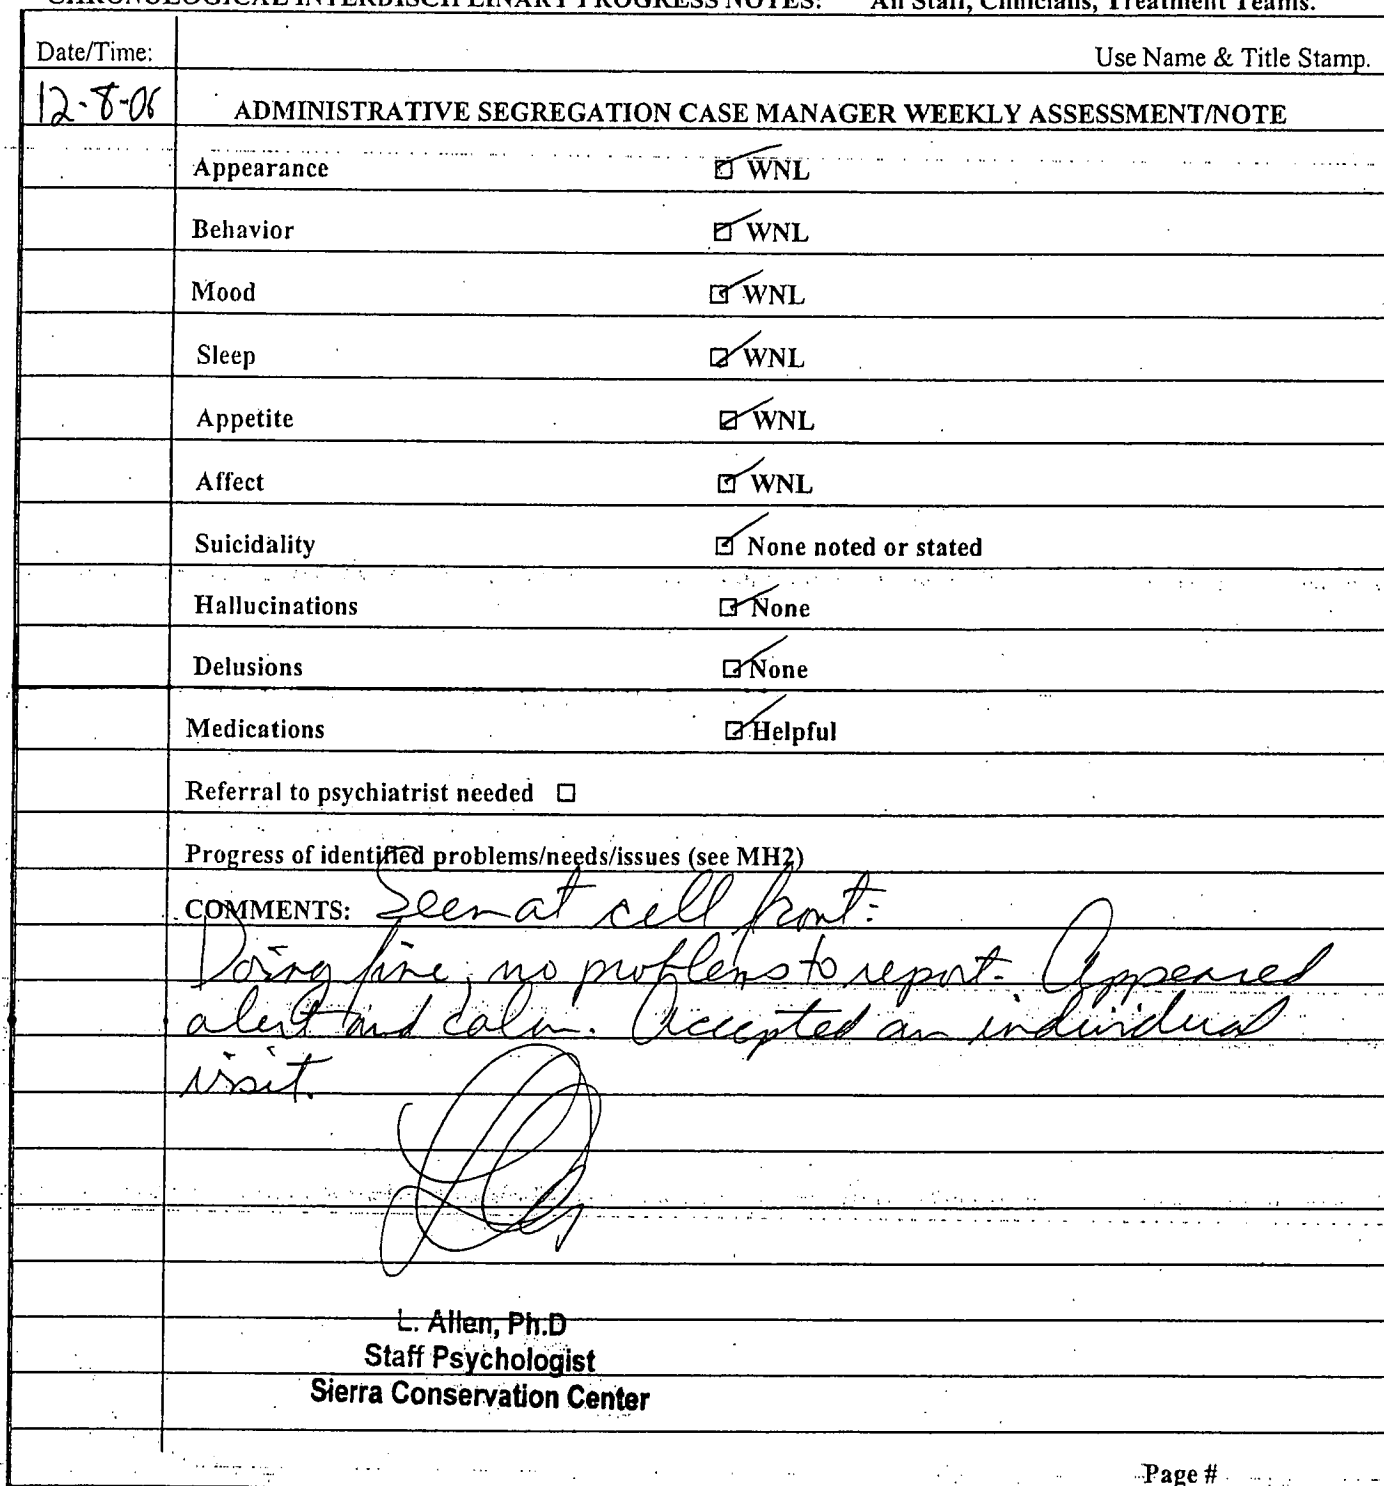 CHRONOLOGICAL INTERDISCIPLINARY PROGRESS NOTES: All Staff, Clinicians, Treatment Teams.
Date/Time: Use Name & Title Stamp.
12-8-06 ADMINISTRATIVE SEGREGATION CASE MANAGER WEEKLY ASSESSMENT/NOTE
Appearance ☑ WNL
Behavior ☑ WNL
Mood ☑ WNL
Sleep ☑ WNL
Appetite ☑ WNL
Affect ☑ WNL
Suicidality ☑ None noted or stated
Hallucinations ☑ None
Delusions ☑ None
Medications ☑ Helpful
Referral to psychiatrist needed ☐
Progress of identified problems/needs/issues (see MH2)
COMMENTS: Seen at cell front:
Doing fine, no problems to report. Appeared
alert and calm. Accepted an individual
visit.
L. Allen, Ph.D
Staff Psychologist
Sierra Conservation Center
Page #